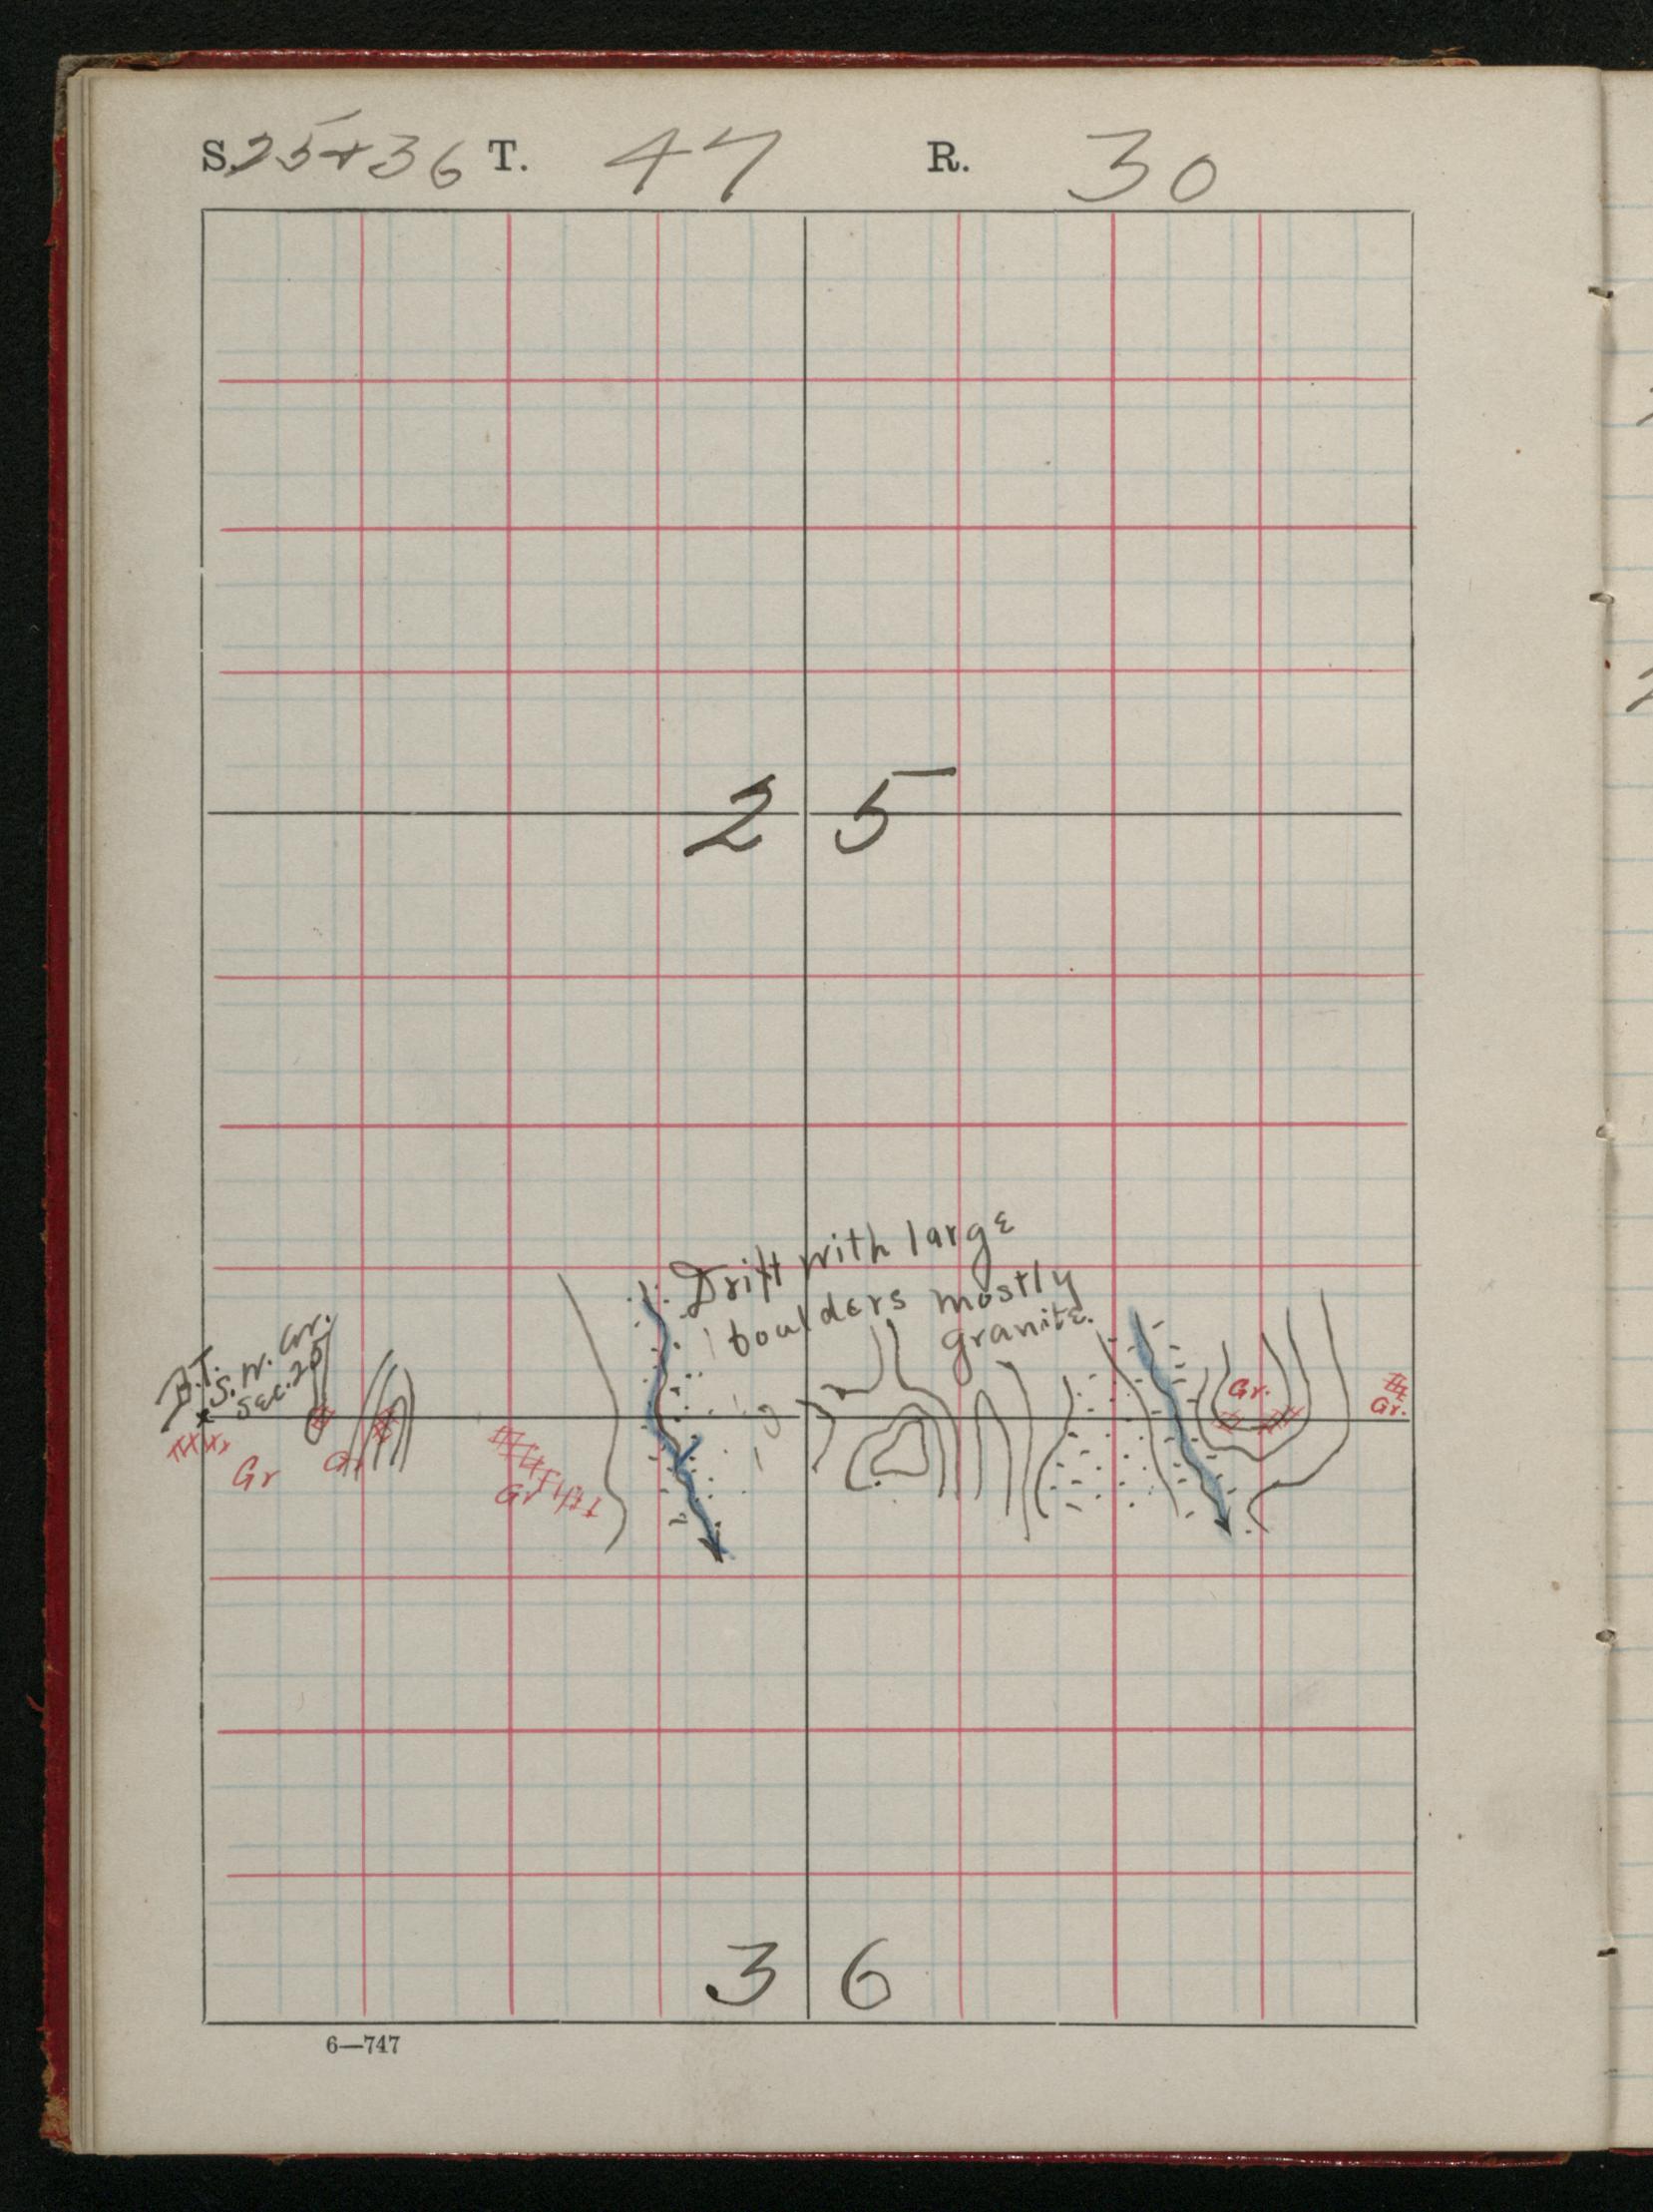 S. 25 + 36 T. 47 R. 30
25
Drift with large
boulders mostly
granite.
B.T.
S.W. Cor.
Sec. 25
Gr.
Gr.
Gr
Gr
Gr
36
6—747